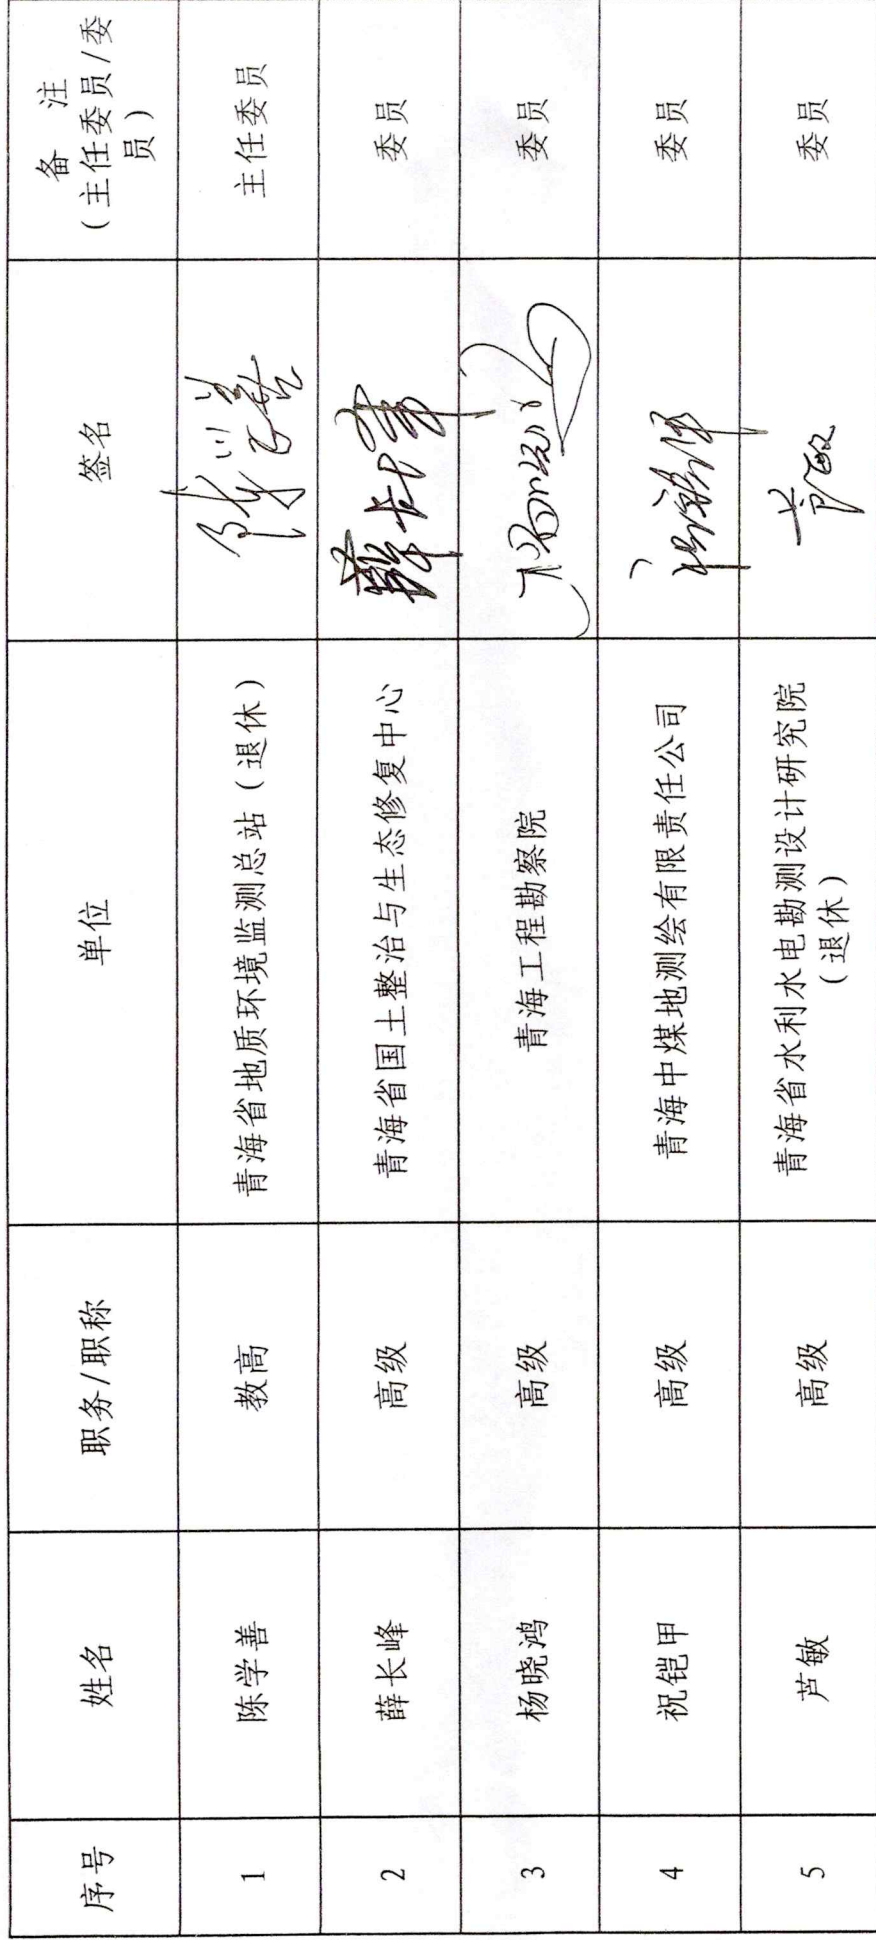 序号 姓名 职务/职称 单位 签名 备 注
(主任委员/委
员)
1 陈学善 教高 青海省地质环境监测总站(退休) 陈学善 主任委员
2 薛长峰 高级 青海省国土整治与生态修复中心 薛长峰 委员
3 杨晓鸿 高级 青海工程勘察院 委员
4 祝铠甲 高级 青海中煤地测绘有限责任公司 委员
5 芦敏 高级 青海省水利水电勘测设计研究院
(退休) 芦敏 委员